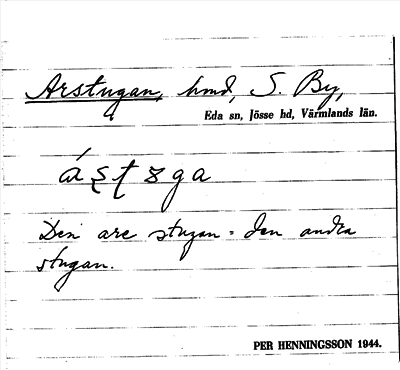 Arstugan, hmd, S. By,
Eda sn, Jösse hd, Värmlands län.
Den are stugan = den andra
stugan.
PER HENNINGSSON 1944.